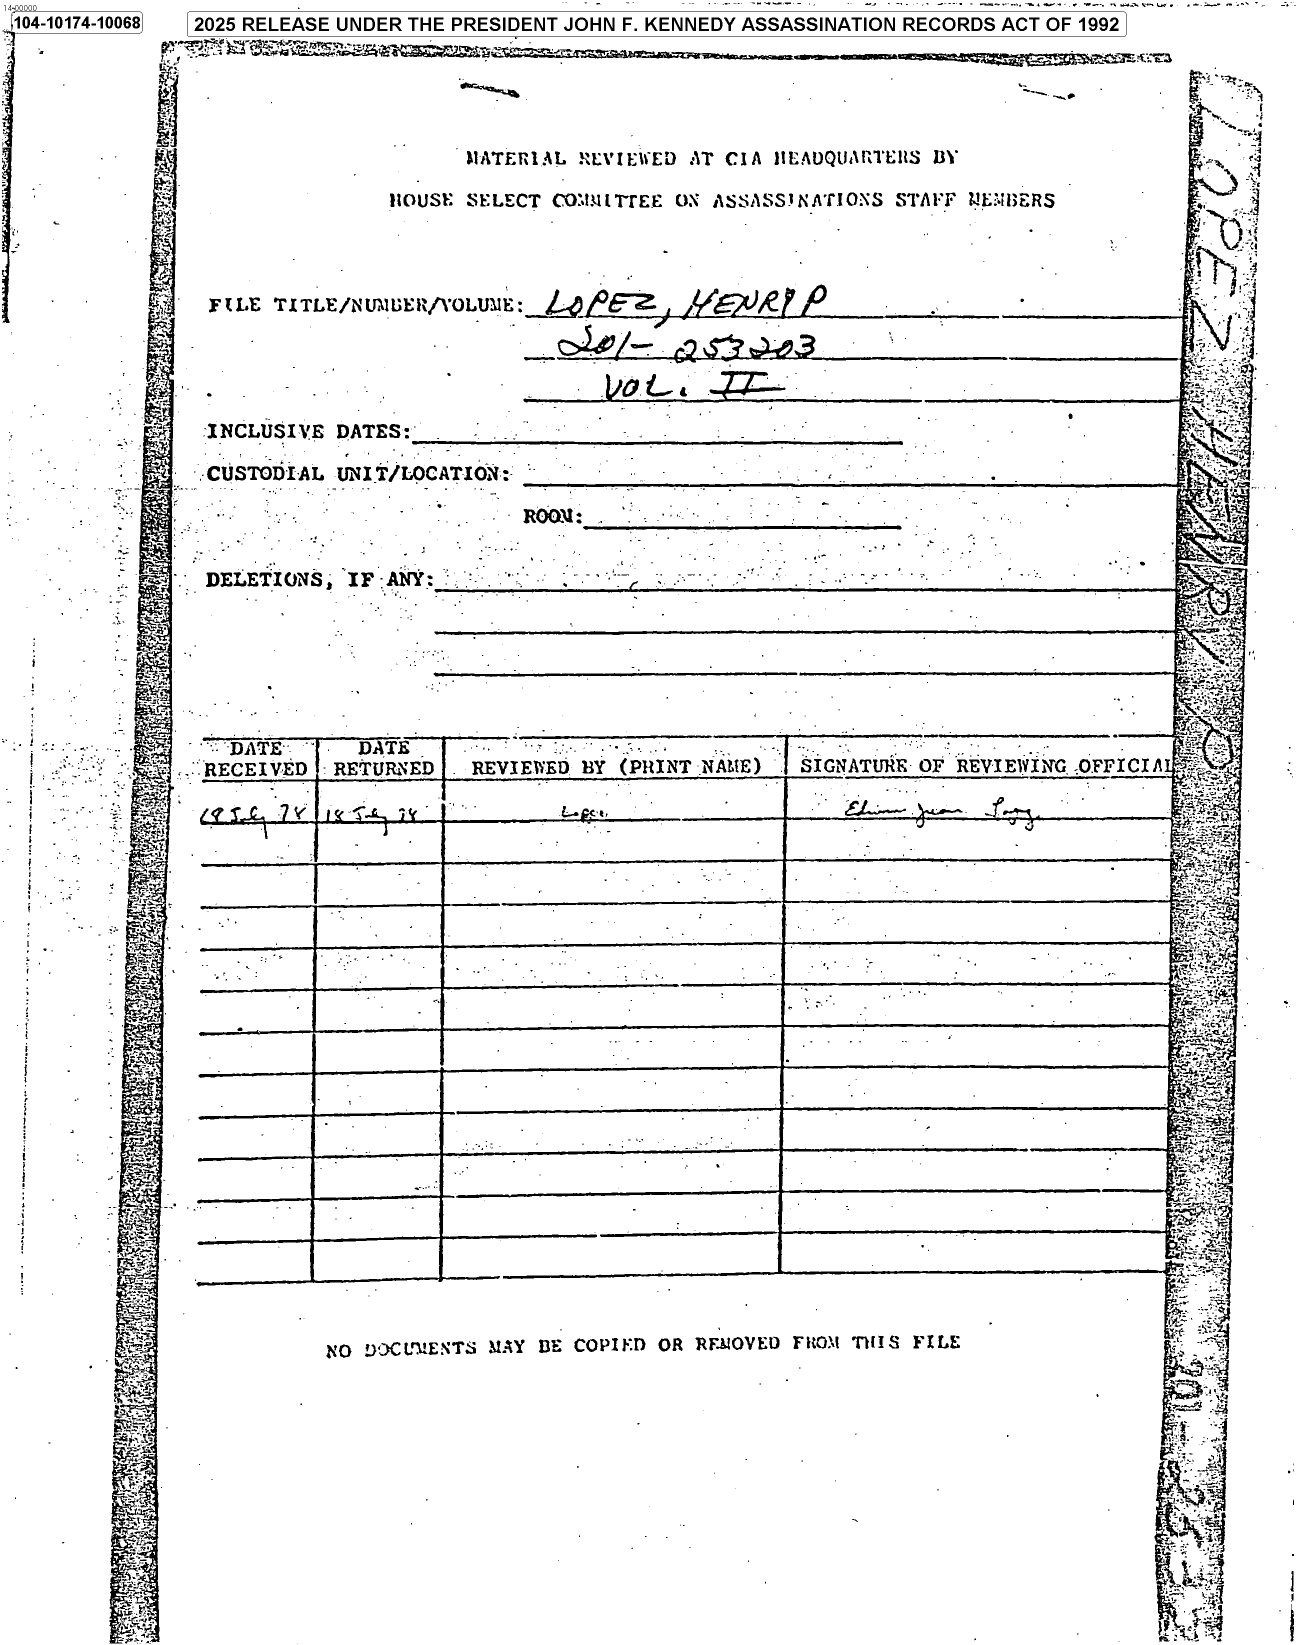 14-00000
104-10174-10068
2025 RELEASE UNDER THE PRESIDENT JOHN F. KENNEDY ASSASSINATION RECORDS ACT OF 1992
MATERIAL REVIEWED AT CIA HEADQUARTERS BY
HOUSE SELECT COMMITTEE ON ASSASSINATIONS STAFF MEMBERS
FILE TITLE/NUMBER/VOLUME: LOPEZ, HENRY P
201- 253203
VOL. II
INCLUSIVE DATES:
CUSTODIAL UNIT/LOCATION:
ROOM:
DELETIONS, IF ANY:
DATE RECEIVED
DATE RETURNED
REVIEWED BY (PRINT NAME)
SIGNATURE OF REVIEWING OFFICIAL
18 July 78
18 July 78
Lopez
Edwin Juan Lopez
NO DOCUMENTS MAY BE COPIED OR REMOVED FROM THIS FILE
LOPEZ HENRY P
201-25